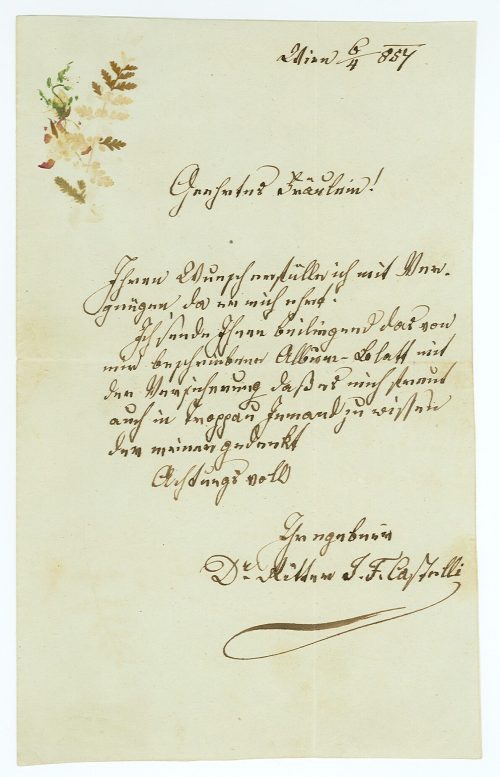 Wien 6/4 857
Geehrtes Fräulein!
Ihren Wunsch erfülle ich mit Ver-
gnügen da er mich ehrt.
Ich sende Ihnen beiliegend das von
mir beschriebene Album-Blatt mit
der Versicherung daß es mich freut
auch in Troppau Jemand zu wissen
der meiner gedenkt
Achtungsvoll
Ihr ergebener
Dr. Ritter I. F. Castelli